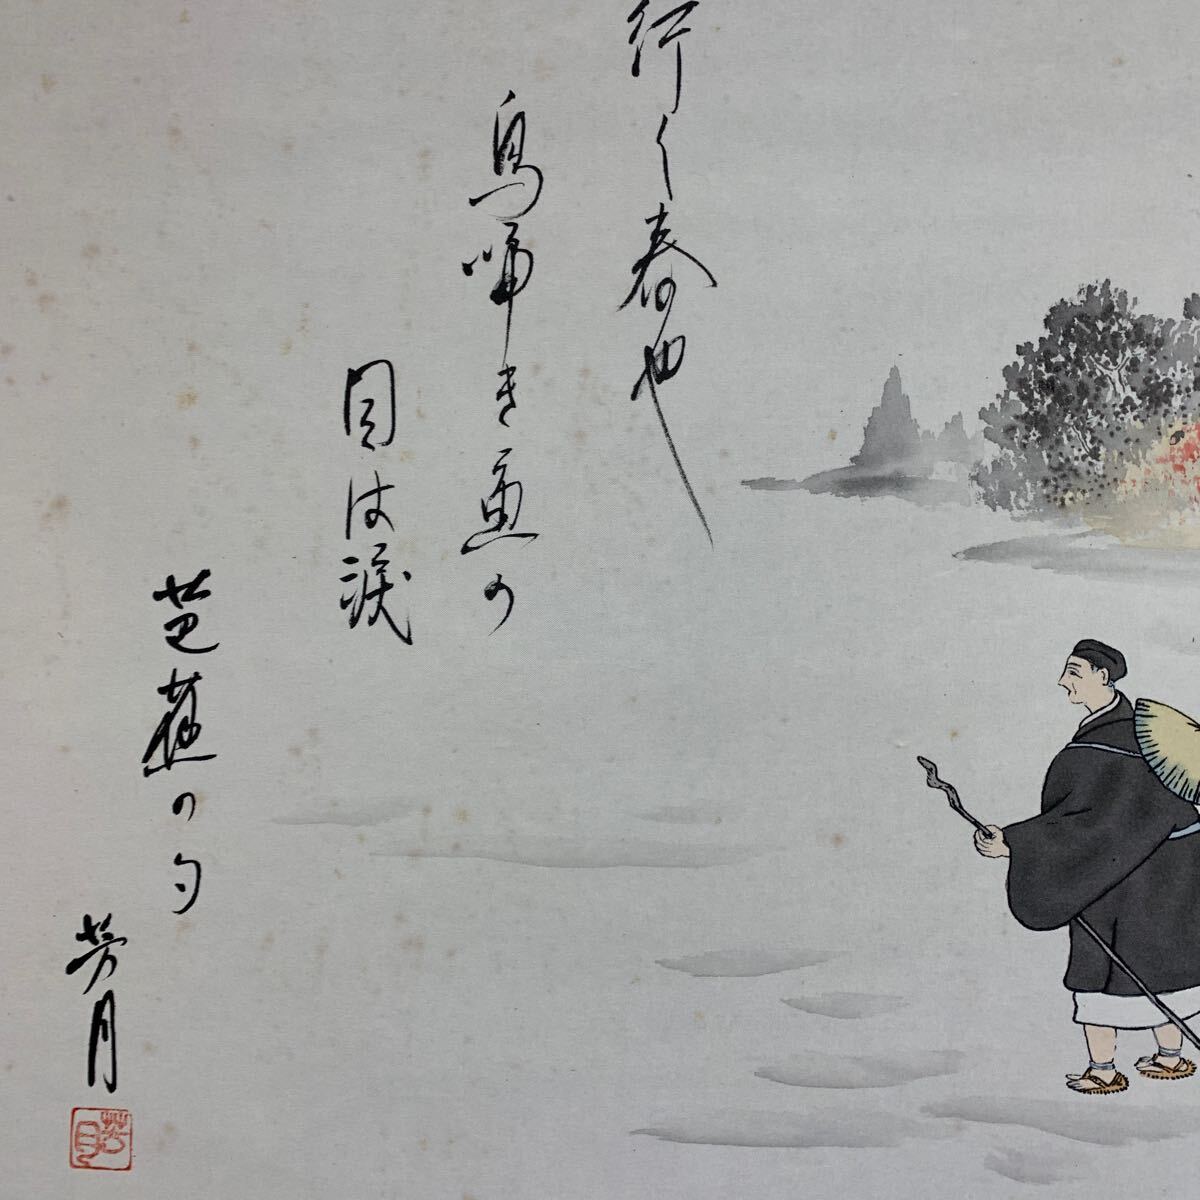 行く春也
鳥啼き魚の
目は涙
芭蕉の句
芳月
芳月